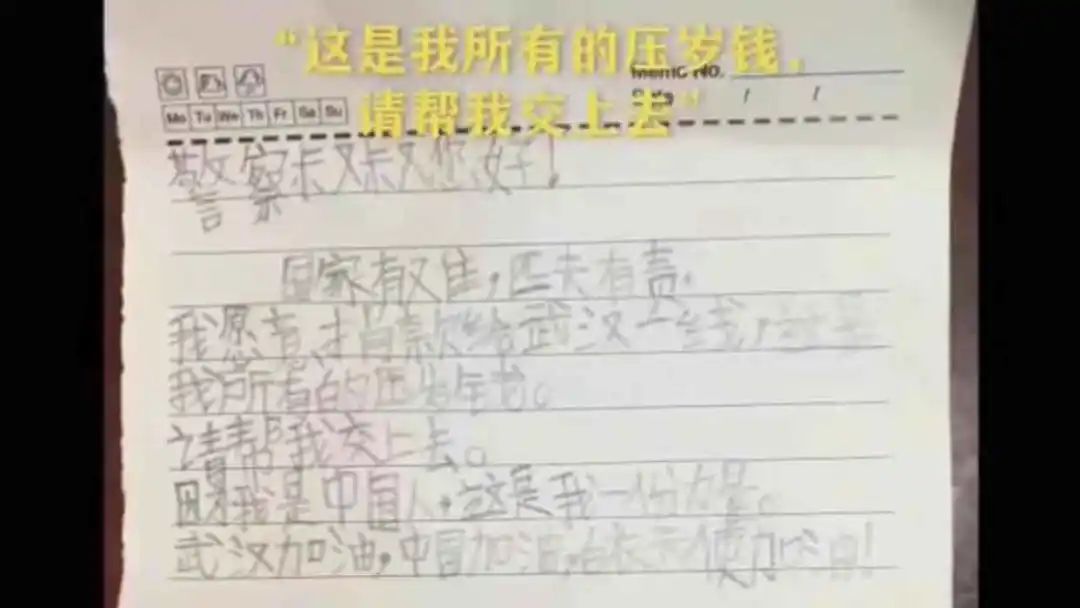 “这是我所有的压岁钱，
请帮我交上去”
Memo No.
Date / /
Mo Tu We Th Fr Sa Su
警察叔叔您好！
国家有难，匹夫有责。
我愿意捐款给武汉一线，这是
我所有的压岁钱。
请帮我交上去。
因为我是中国人，这是我一份力量。
武汉加油，中国加油，白衣天使加油！